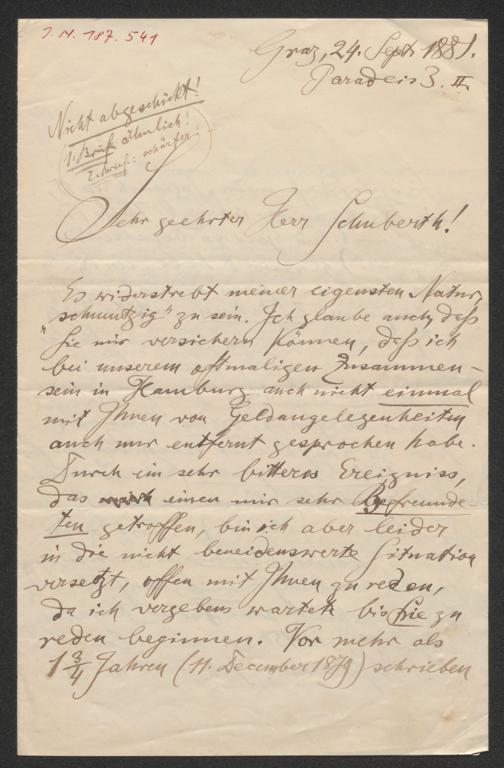 I.N. 187.541
Graz, 24. Sept 1881.
Paradeis 3. II.
Nicht abgeschickt!
1. Brief ähnlich!
2. Brief: schärfer!
Sehr geehrter Herr Schuberth!
Es widerstrebt meiner eigensten Natur,
"schmutzig" zu sein. Ich glaube auch, daß
Sie mir versichern können, daß ich
bei unserem oftmaligen Zusammen-
sein in Hamburg auch nicht einmal
mit Ihnen von Geldangelegenheiten
auch nur entfernt gesprochen habe.
Durch ein sehr bitteres Ereigniss,
das einen mir sehr Befreunde-
ten getroffen, bin ich aber leider
in die nicht beneidenswerte Situation
versetzt, offen mit Ihnen zu reden,
da ich vergebens wartete bis Sie zu
reden beginnen. Vor mehr als
1 3/4 Jahren (11. December 1879) schrieben